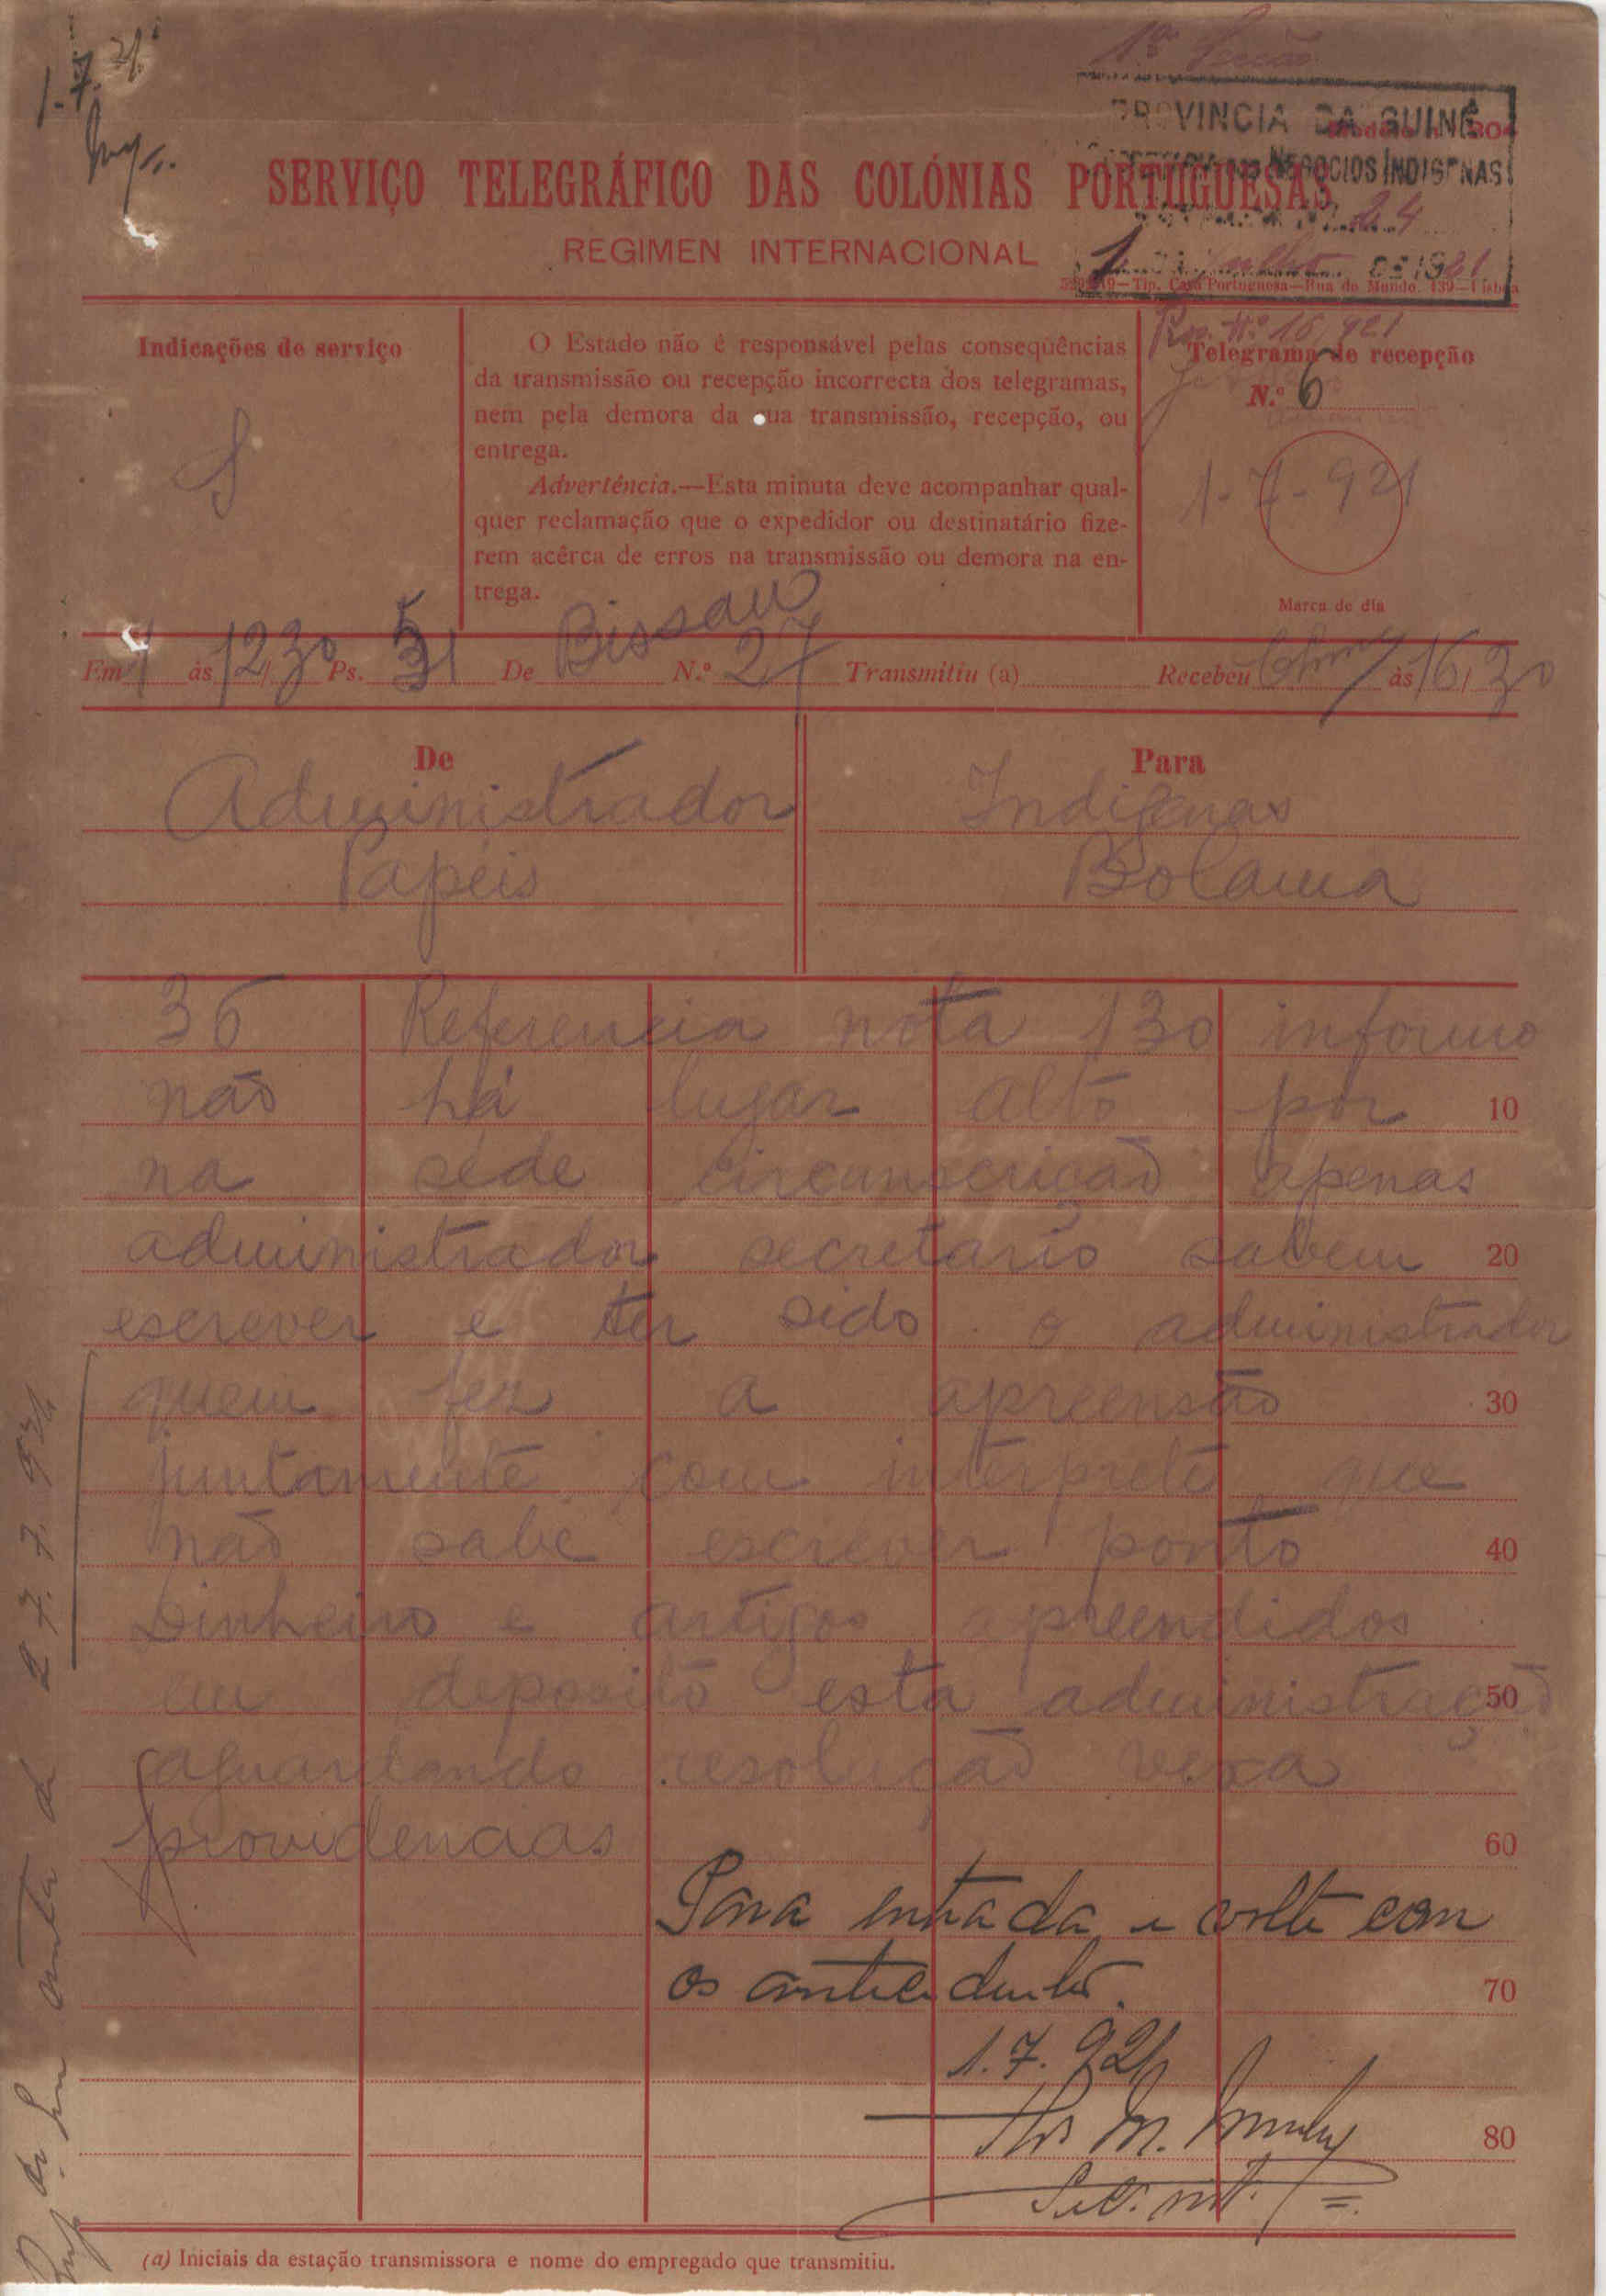 1.7.21
1ª Secção
PROVINCIA DA GUINÉ
NEGOCIOS INDIGENAS
24
1 Julho DE 1921
SERVIÇO TELEGRÁFICO DAS COLÓNIAS PORTUGUESAS
REGIMEN INTERNACIONAL
Tip. Casa Portuguesa—Rua do Mundo, 139—Lisboa
Indicações de serviço
S
O Estado não é responsável pelas conseqüências
da transmissão ou recepção incorrecta dos telegramas,
nem pela demora da sua transmissão, recepção, ou
entrega.
Advertência.—Esta minuta deve acompanhar qual-
quer reclamação que o expedidor ou destinatário fize-
rem acêrca de erros na transmissão ou demora na en-
trega.
Nº 16, 921
Telegrama de recepção
N.º 6
1-7-921
Marca de dia
Em 1 às 12/30 Ps. 51 De Bissau N.º 27 Transmitiu (a) Recebeu às 16/30
De
Administrador
Papeis
Para
Indigenas
Bolama
36 Referencia nota 130 informo
não há lugar alto por 10
na séde circunscrição apenas
administrador secretario sabem 20
escrever e ter sido o administrador
quem fez a apreensão 30
juntamente com interprete que
não sabe escrever ponto 40
Dinheiro e artigos apreendidos
em deposito esta administração 50
aguardando resolução vexa
providencias 60
Para entrada e volte com
os antecedentes. 70
1.7.921
80
(a) Iniciais da estação transmissora e nome do empregado que transmitiu.
2.7.921